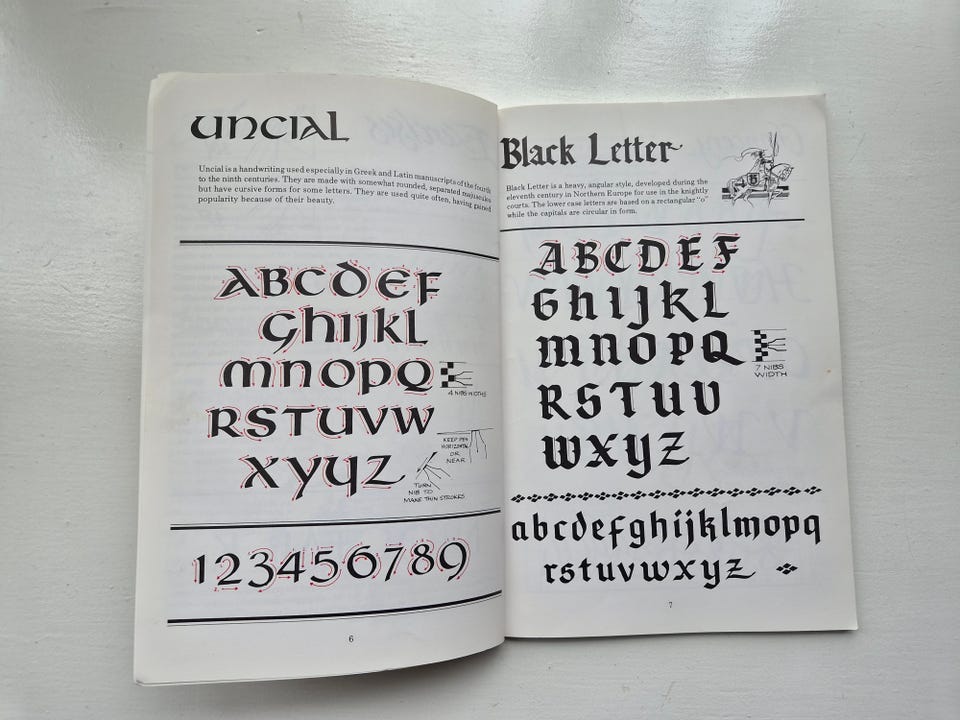 uncial
Uncial is a handwriting used especially in Greek and Latin manuscripts of the fourth
to the ninth centuries. They are made with somewhat rounded, separated majuscules
but have cursive forms for some letters. They are used quite often, having gained
popularity because of their beauty.
ABCDEF
GHIJKL
MNOPQ
4 NIBS WIDTHS
RSTUVW
KEEP PEN
HORIZONTAL
OR
NEAR
XYYZ
TURN
NIB TO
MAKE THIN STROKES
123456789
6
Black Letter
Black Letter is a heavy, angular style, developed during the
eleventh century in Northern Europe for use in the knightly
courts. The lower case letters are based on a rectangular "o"
while the capitals are circular in form.
ABCDEF
GHIJKL
MNOPQ
7 NIBS
WIDTH
RSTUV
WXYZ
abcdefghijklmopq
rstuvwxyz
7